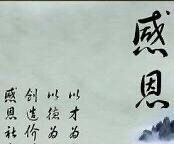 感恩
以才为
以德为
创造价
感恩社